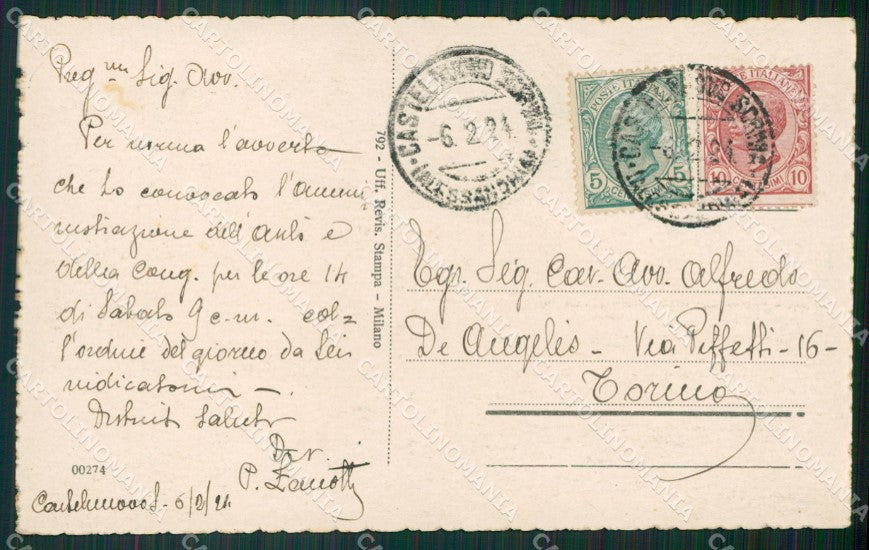 Preg.mo Sig. Avv.
Per norma l'avverto
che ho convocato l'ammi
nistrazione dell'Asilo e
della Cong. per le ore 14
di Sabato 9 c.m. col=
l'ordine del giorno da Lei
indicatomi -
Distinti saluti
Dev.
P. Zanotti
00274
Castelnuovo S. 6/2/24
792 - Uff. Revis. Stampa - Milano
CASTELNUOVO SCRIVIA
-6.2.24
(ALESSANDRIA)
POSTE ITALIANE
5 5
POSTE ITALIANE
10 10
Egr. Sig. Cav. Avv. Alfredo
De Angelis - Via Piffetti - 16 -
Torino
CARTOLINOMANIA